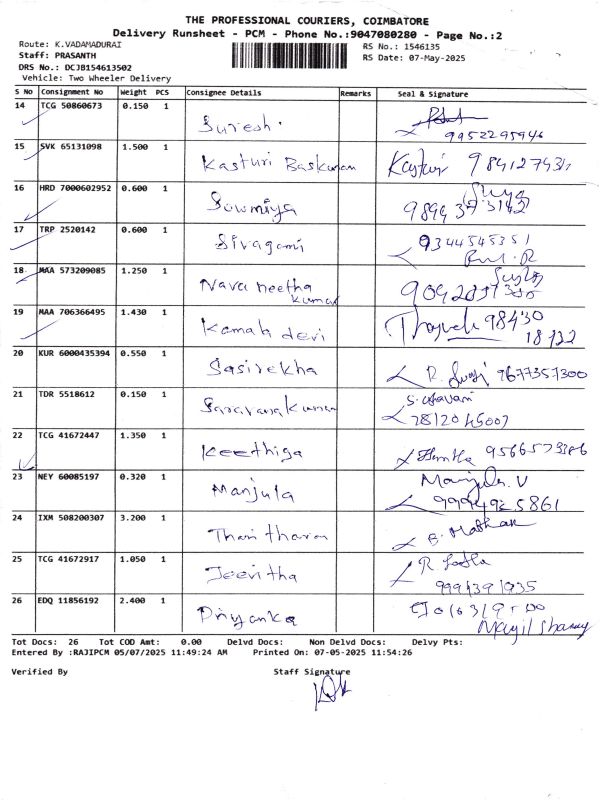 THE PROFESSIONAL COURIERS, COIMBATORE
Delivery Runsheet - PCM - Phone No.:9047080280 - Page No.:2
Route: K.VADAMADURAI
Staff: PRASANTH
DRS No.: DCJB154613502
Vehicle: Two Wheeler Delivery
RS No.: 1546135
RS Date: 07-May-2025
S No Consignment No Weight PCS Consignee Details Remarks Seal & Signature
14 TCG 50860673 0.150 1 Suresh. 9952295946
15 SVK 65131098 1.500 1 Kasturi Baskaran
16 HRD 7000602952 0.600 1 Sowmiya
17 TRP 2520142 0.600 1 Sivagami 9344545351
18 MAA 573209085 1.250 1 Navaneetha
kumar
19 MAA 706366495 1.430 1 Kamala devi 98430
18122
20 KUR 6000435394 0.550 1 Sasirekha 9677357300
21 TDR 5518612 0.150 1 Saravanakumar
22 TCG 41672447 1.350 1 Keethiga
23 NEY 60085197 0.320 1 Manjula Manjula. V
9994925861
24 IXM 508200307 3.200 1 Tharitharan
25 TCG 41672917 1.050 1 Jeevitha
26 EDQ 11856192 2.400 1 Priyanka
Tot Docs: 26 Tot COD Amt: 0.00 Delvd Docs: Non Delvd Docs: Delvy Pts:
Entered By :RAJIPCM 05/07/2025 11:49:24 AM Printed On: 07-05-2025 11:54:26
Verified By Staff Signature